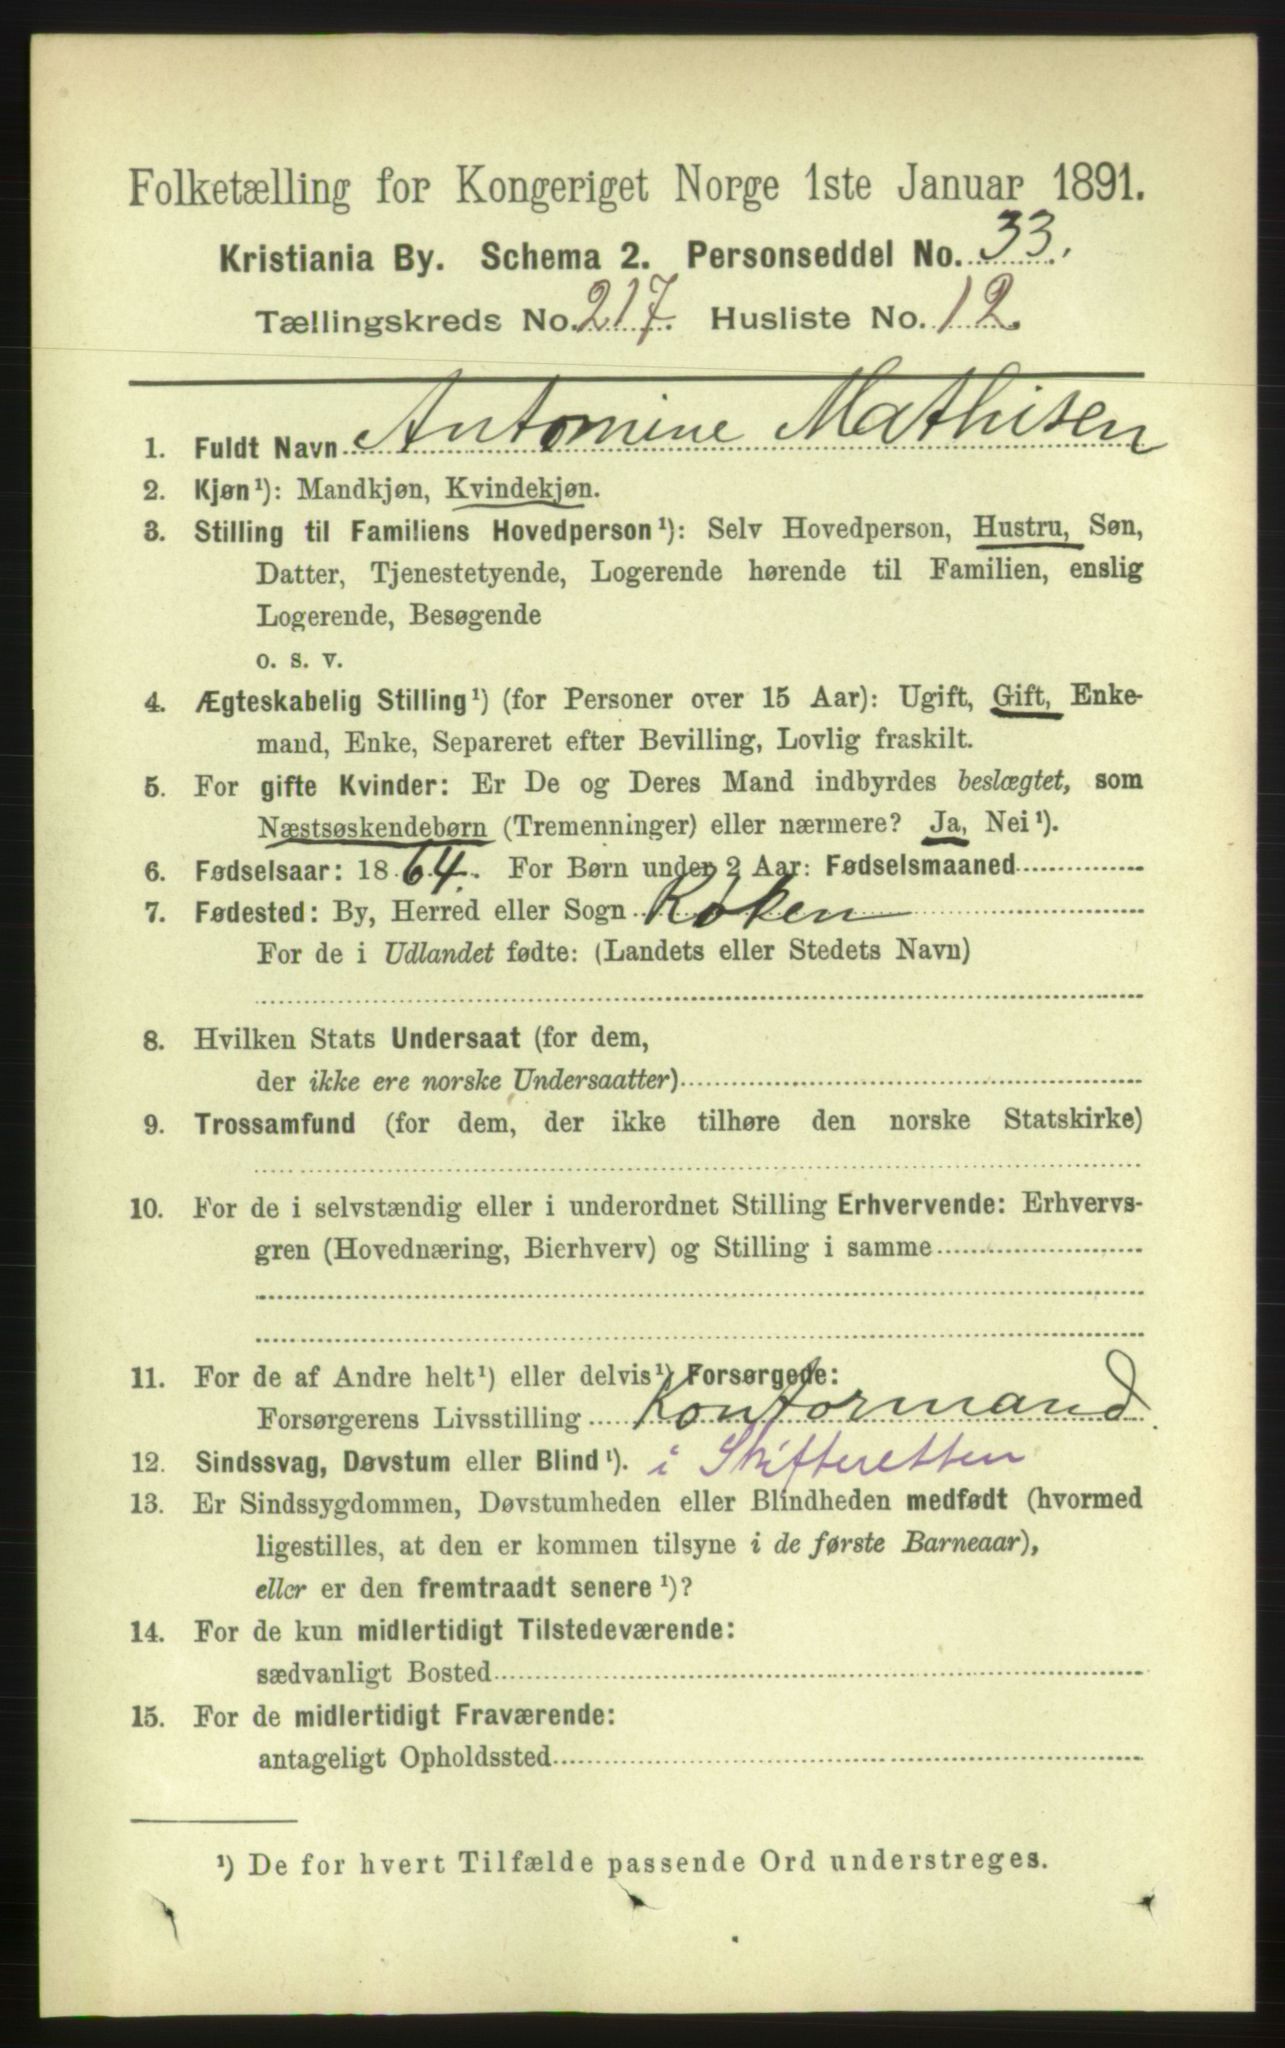 Folketælling for Kongeriget Norge 1ste Januar 1891.
Kristiania By. Schema 2. Personseddel No. 33.
Tællingskreds No. 217. Husliste No. 12.
1. Fuldt Navn Antomine Mathisen
2. Kjøn¹): Mandkjøn, Kvindekjøn.
3. Stilling til Familiens Hovedperson¹): Selv Hovedperson, Hustru, Søn,
Datter, Tjenestetyende, Logerende hørende til Familien, enslig
Logerende, Besøgende
o. s. v.
4. Ægteskabelig Stilling¹) (for Personer over 15 Aar): Ugift, Gift, Enke-
mand, Enke, Separeret efter Bevilling, Lovlig fraskilt.
5. For gifte Kvinder: Er De og Deres Mand indbyrdes beslægtet, som
Næstsøskendebørn (Tremenninger) eller nærmere? Ja, Nei¹).
6. Fødselsaar: 1864. For Børn under 2 Aar: Fødselsmaaned
7. Fødested: By, Herred eller Sogn Røken
For de i Udlandet fødte: (Landets eller Stedets Navn)
8. Hvilken Stats Undersaat (for dem,
der ikke ere norske Undersaatter)
9. Trossamfund (for dem, der ikke tilhøre den norske Statskirke)
10. For de i selvstændig eller i underordnet Stilling Erhvervende: Erhvervs-
gren (Hovednæring, Bierhverv) og Stilling i samme
11. For de af Andre helt¹) eller delvis¹) Forsørgede:
Forsørgerens Livsstilling Kontormand
12. Sindssvag, Døvstum eller Blind¹). i Skifteretten
13. Er Sindssygdommen, Døvstumheden eller Blindheden medfødt (hvormed
ligestilles, at den er kommen tilsyne i de første Barneaar),
eller er den fremtraadt senere¹)?
14. For de kun midlertidigt Tilstedeværende:
sædvanligt Bosted
15. For de midlertidigt Fraværende:
antageligt Opholdssted
¹) De for hvert Tilfælde passende Ord understreges.